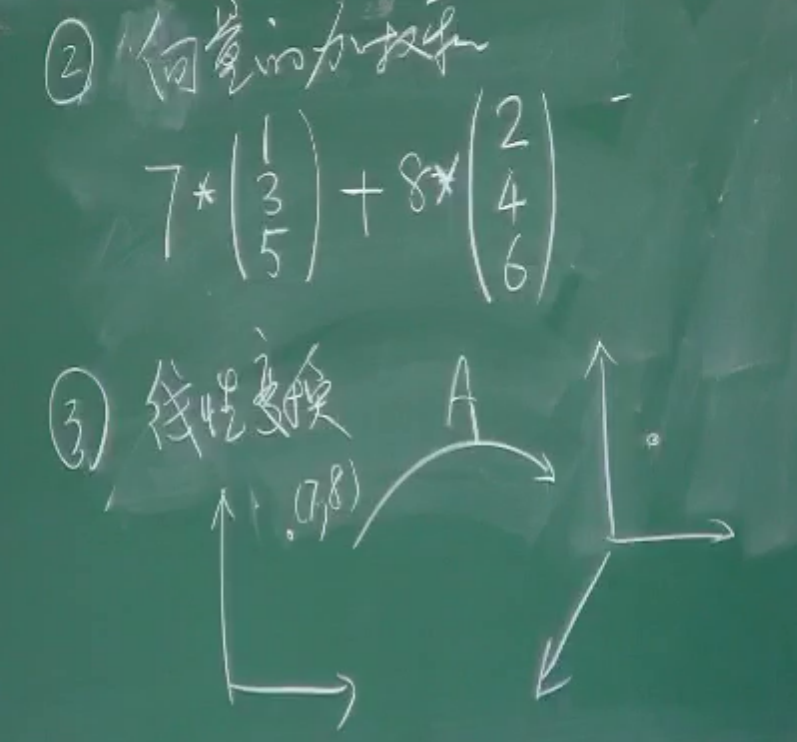 ② 向量的加权和
7*(1 3 5) + 8*(2 4 6)
③ 线性变换
A
(7,8)